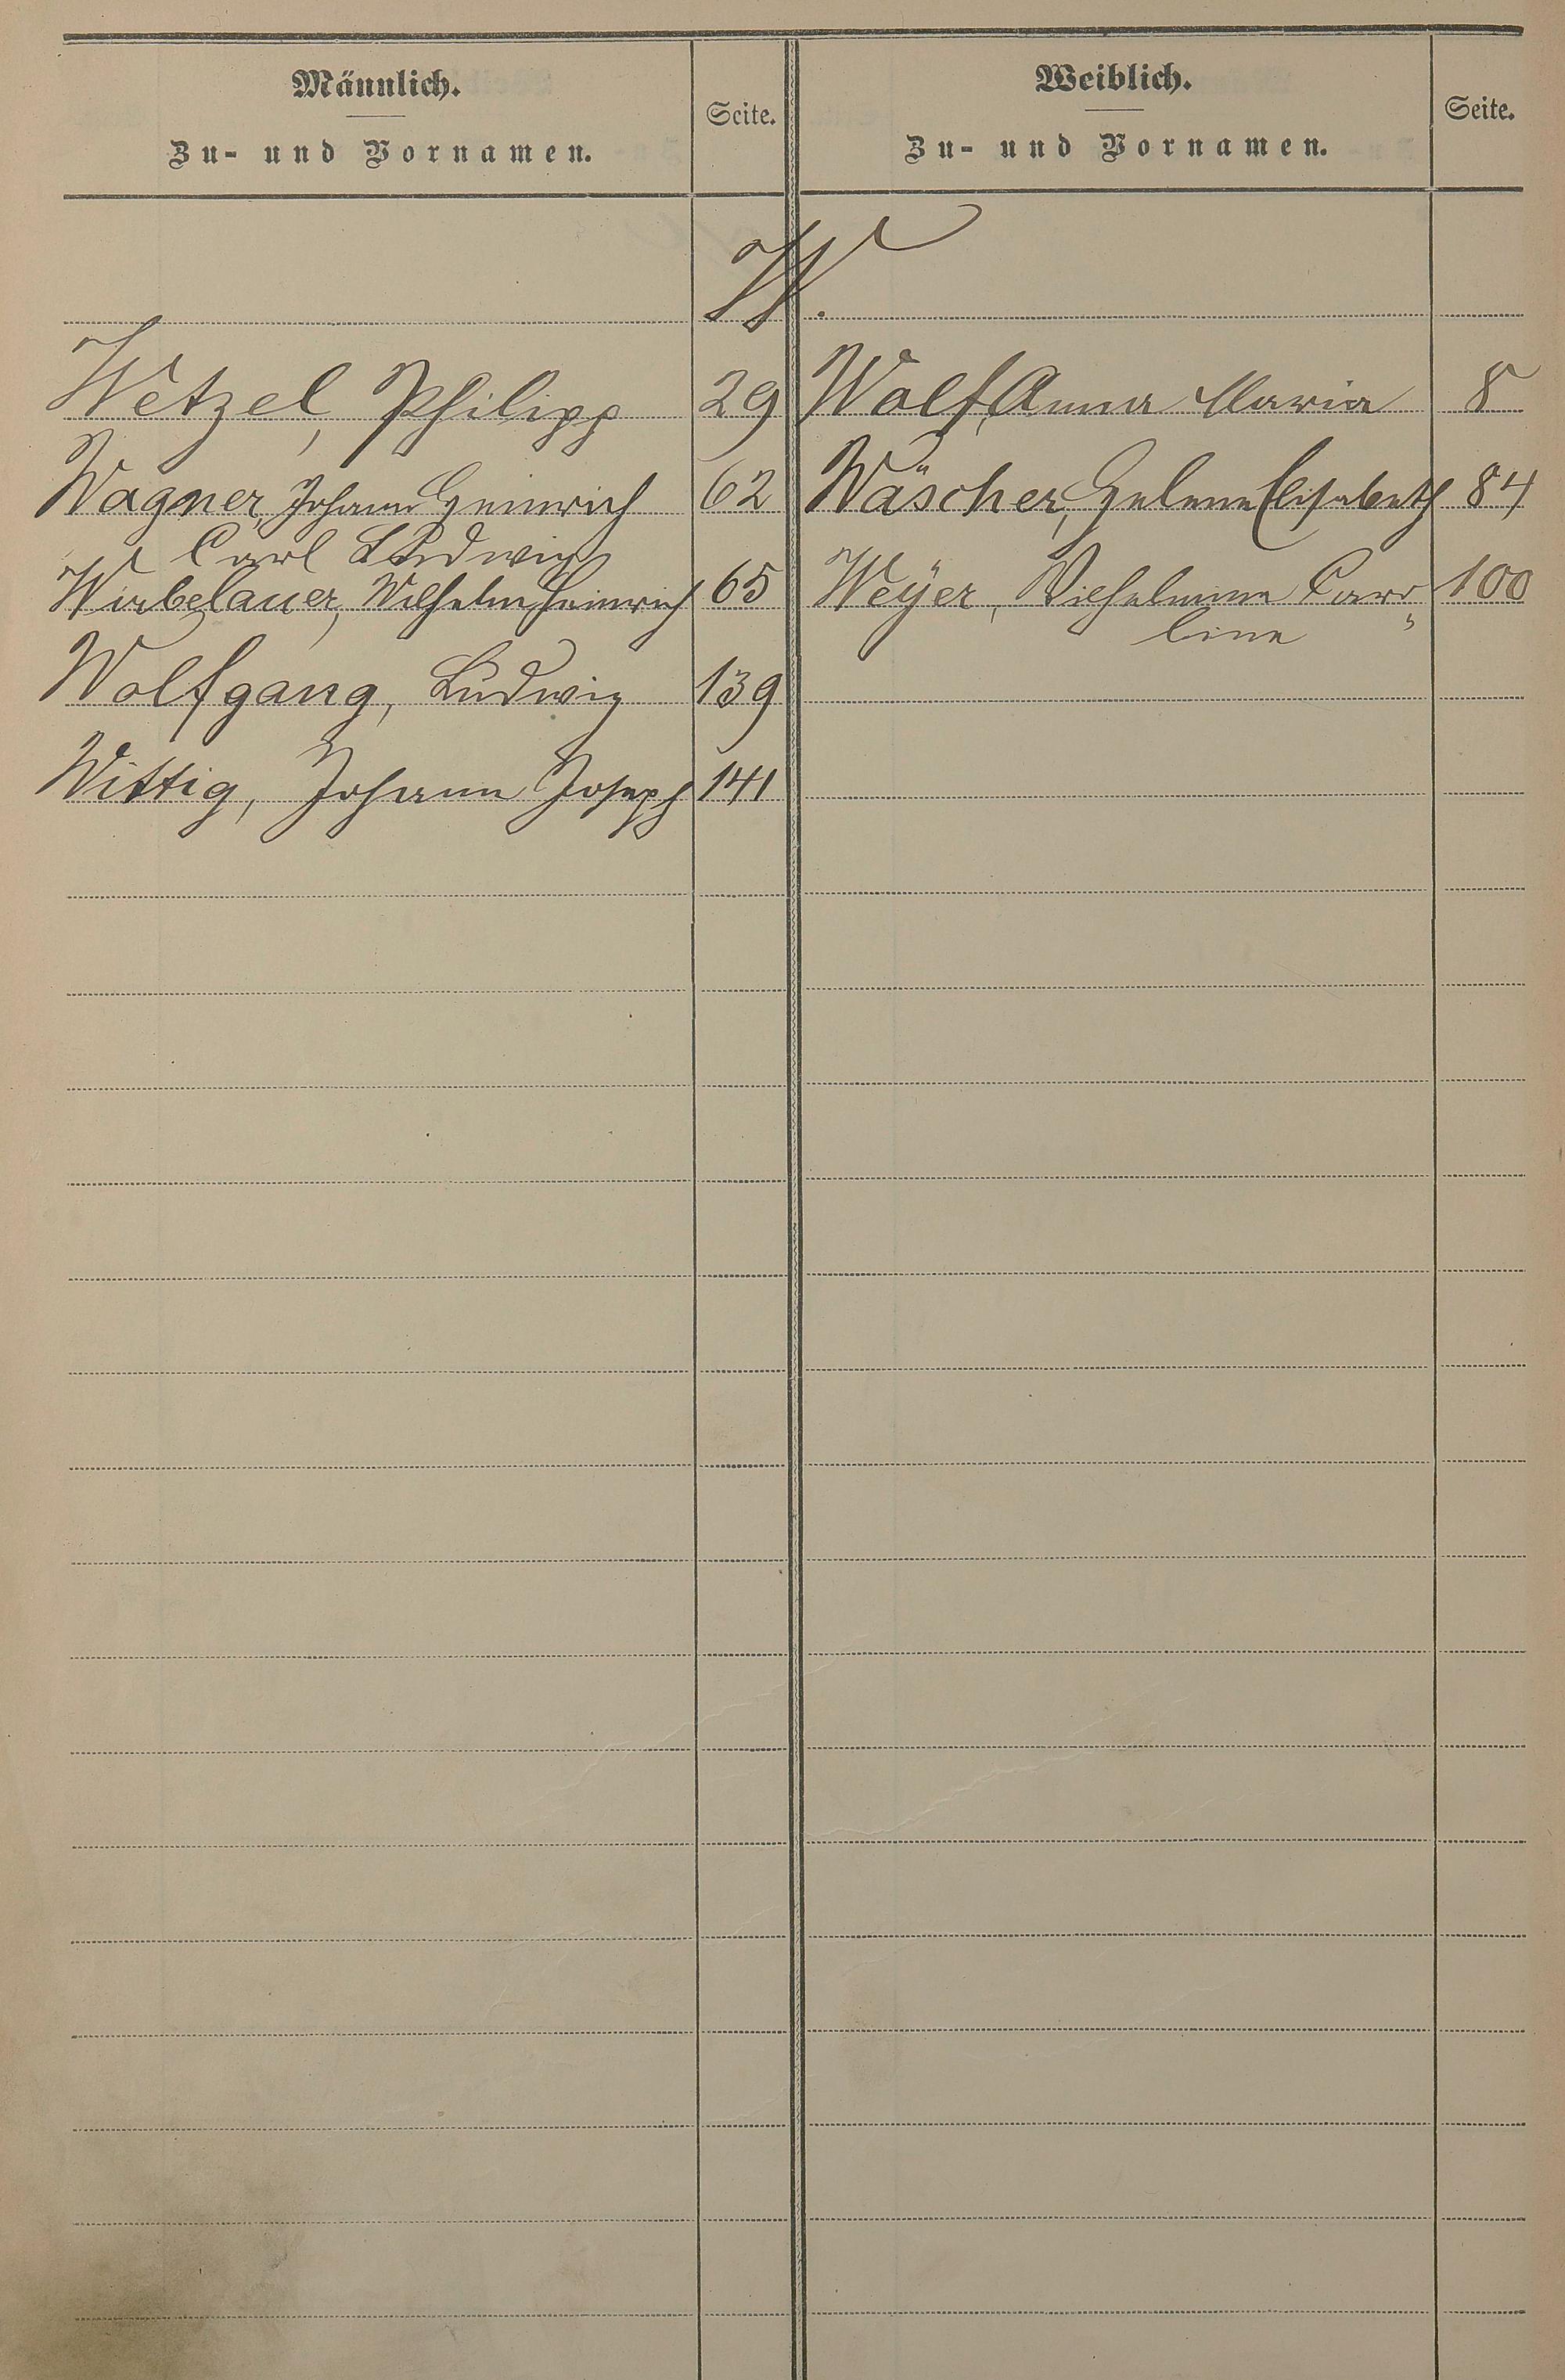 Männlich.
Zu- und Vornamen.
Seite.
Weiblich.
Zu- und Vornamen.
Seite.
W.
Wetzel, Philipp 29
Wolf, Anna Maria 8
Wagner, Johann Heinrich 62
Carl Ludwig
Wäscher, Helene Elisabeth 84
Wirbelauer, Wilhelm Heinrich 65
Weÿer, Wilhelmine Caro„ 100
line
Wolfgang, Ludwig 139
Wittig, Johann Joseph 141